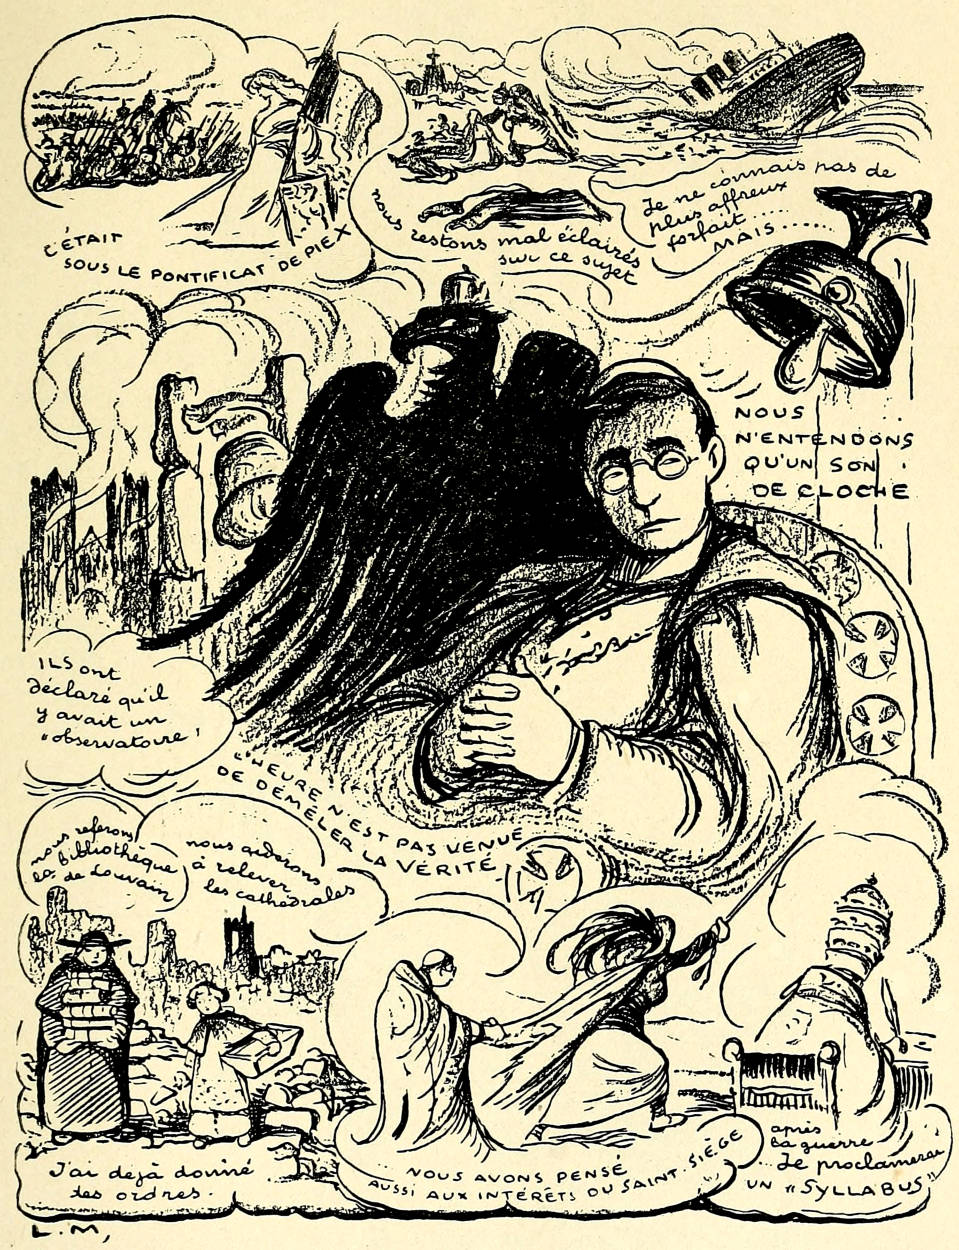 C'ÉTAIT
SOUS LE PONTIFICAT DE PIE X
nous restons mal éclairés
sur ce sujet
Je ne connais pas de
plus affreux
forfait .....
MAIS......
NOUS
N'ENTENDONS
QU'UN SON
DE CLOCHE
ILS ont
déclaré qu'il
y avait un
"observatoire'
L'HEURE N'EST PAS VENUE
DE DÉMÊLER LA VÉRITÉ
nous referons
la bibliothèque
de Louvain
nous aiderons
à relever
les cathédrales
J'ai dejà donné
des ordres.
NOUS AVONS PENSÉ
AUSSI AUX INTÉRÊTS DU SAINT-SIÈGE
après
la guerre
...Je proclamerai
UN "SYLLABUS"
L.M,